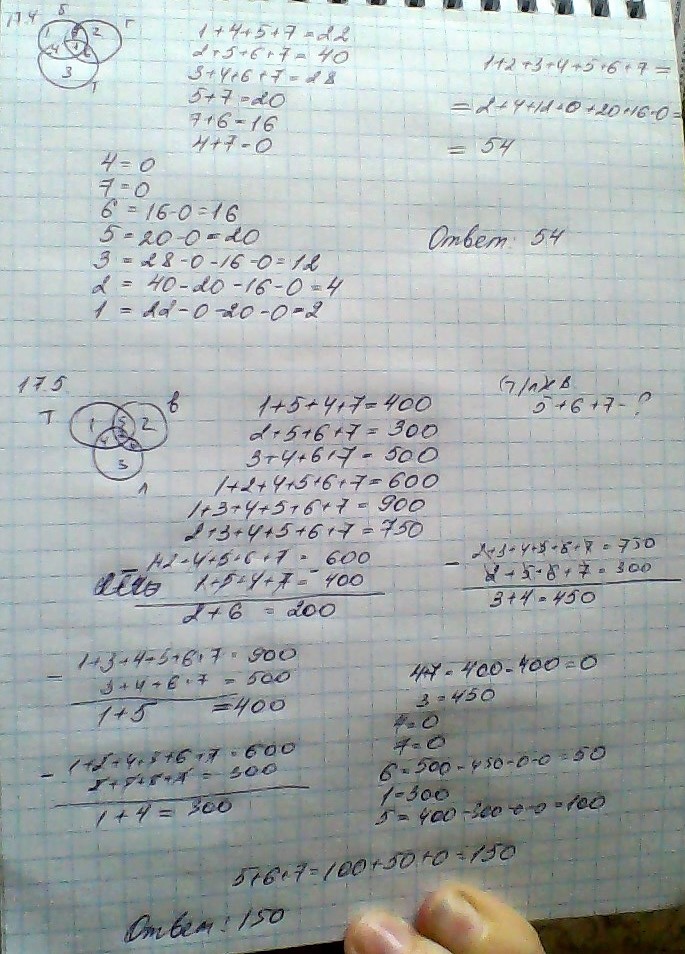 17.4
Б
Г
Т
1 5 2
4 7 6
3
1+4+5+7=22
2+5+6+7=40
3+4+6+7=28
5+7=20
7+6=16
4+7=0
1+2+3+4+5+6+7=
=2+4+12+0+20+16+0=
= 54
4=0
7=0
6=16-0=16
5=20-0=20
3=28-0-16-0=12
2=40-20-16-0=4
1=22-0-20-0=2
Ответ: 54
17.5
Т
В
Л
1 5 2
4
3
1+5+4+7=400
2+5+6+7=300
3+4+6+7=500
1+2+4+5+6+7=600
1+3+4+5+6+7=900
2+3+4+5+6+7=750
5+6+7-?
1+2+4+5+6+7=600
1+5+4+7=400
2+6=200
- 2+3+4+5+6+7=750
2+5+6+7=300
3+4=450
- 1+3+4+5+6+7=900
3+4+6+7=500
1+5=400
- 1+2+4+5+6+7=600
2+5+6+7=300
1+4=300
4+7=400-400=0
3=450
4=0
7=0
6=500-450-0-0=50
1=300
5=400-300-0-0=100
5+6+7=100+50+0=150
Ответ: 150